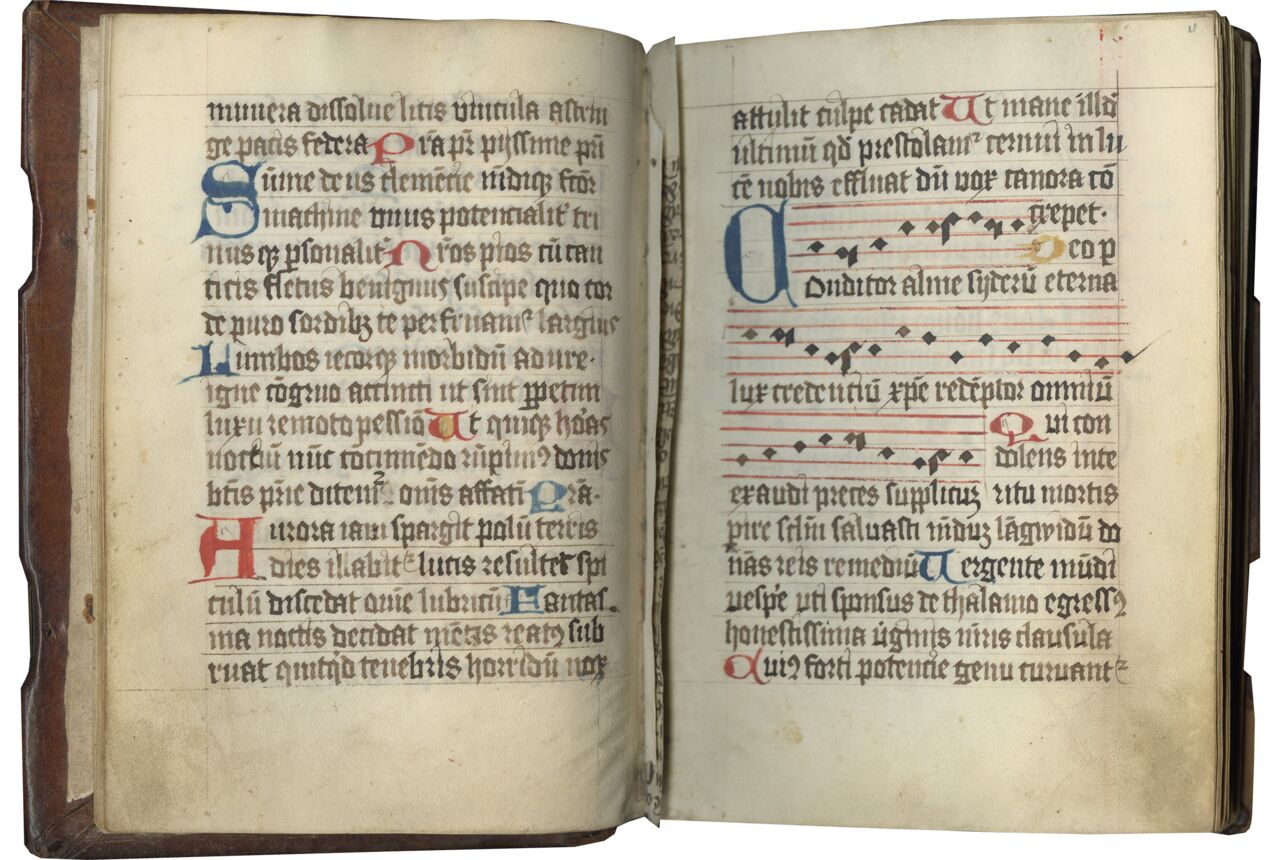 munera dissolue litis vincula astrin
ge pacis federa Pr̄a pr̄ pijssime pr̄i
Sūme deus clemēcie mūdiq; fcōr
machine vnius potencialit̄ tri
nusq; ꝑsonalit̄ Nr̄os pios cū can
ticis fletus benignus suscipe quo cor
de puro sordibꝫ te perfruamꝰ largius
Lumbos iecorq; morbidū adure·
igne cōgruo accincti ut sint ꝑpetim
luxu remoto pessiō Ut quiq; horas
noctiū nūc cōcinnēdo rūpimꝰ donis
btīs pr̄ie ditemꝰ om̄s affatī Pr̄a·
Aurora iam spargit polū terris
dies illabit᷑ lucis resultet spi
culū discedat om̄e lubricū Fantas
ma noctis decidat mētis reatꝰ sub
ruat quitq̄d tenebris horridū nox
attulit culpe cadat Ut mane illd̄
ultimū qd̄ prestolamᷣ cernui in lu
cē nobis effluat dū vox canora cō
crepet·
Deo p
Conditor alme syderū eterna
lux credenciū xp̄e redēptor omniū
Qui con
exaudi preces supplicuꝫ dolens inte
ritu mortis
pire sclm̄ saluasti mūduꝫ lāgwidū do
nās reis remediū Uergente mūdi
uesp̄e uti sponsus de thalamo egressꝰ
honestissima uḡinis mr̄is clausula
Cuiꝰ forti potencie genu curuant᷑